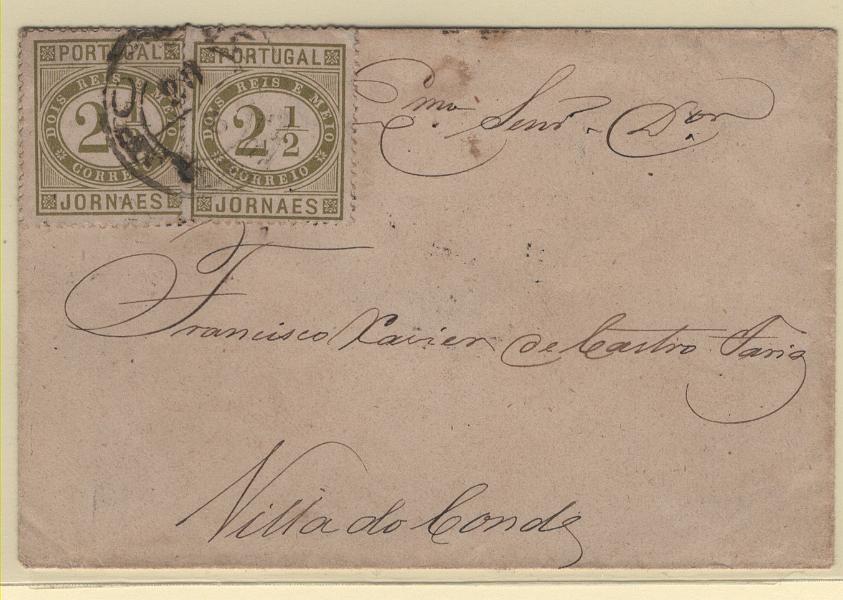 PORTUGAL
DOIS REIS E MEIO
2 1/2
CORREIO
JORNAES
PORTUGAL
DOIS REIS E MEIO
2 1/2
CORREIO
JORNAES
Emo Senr. Dor
Francisco Xavier de Castro Faria
Villa do Conde